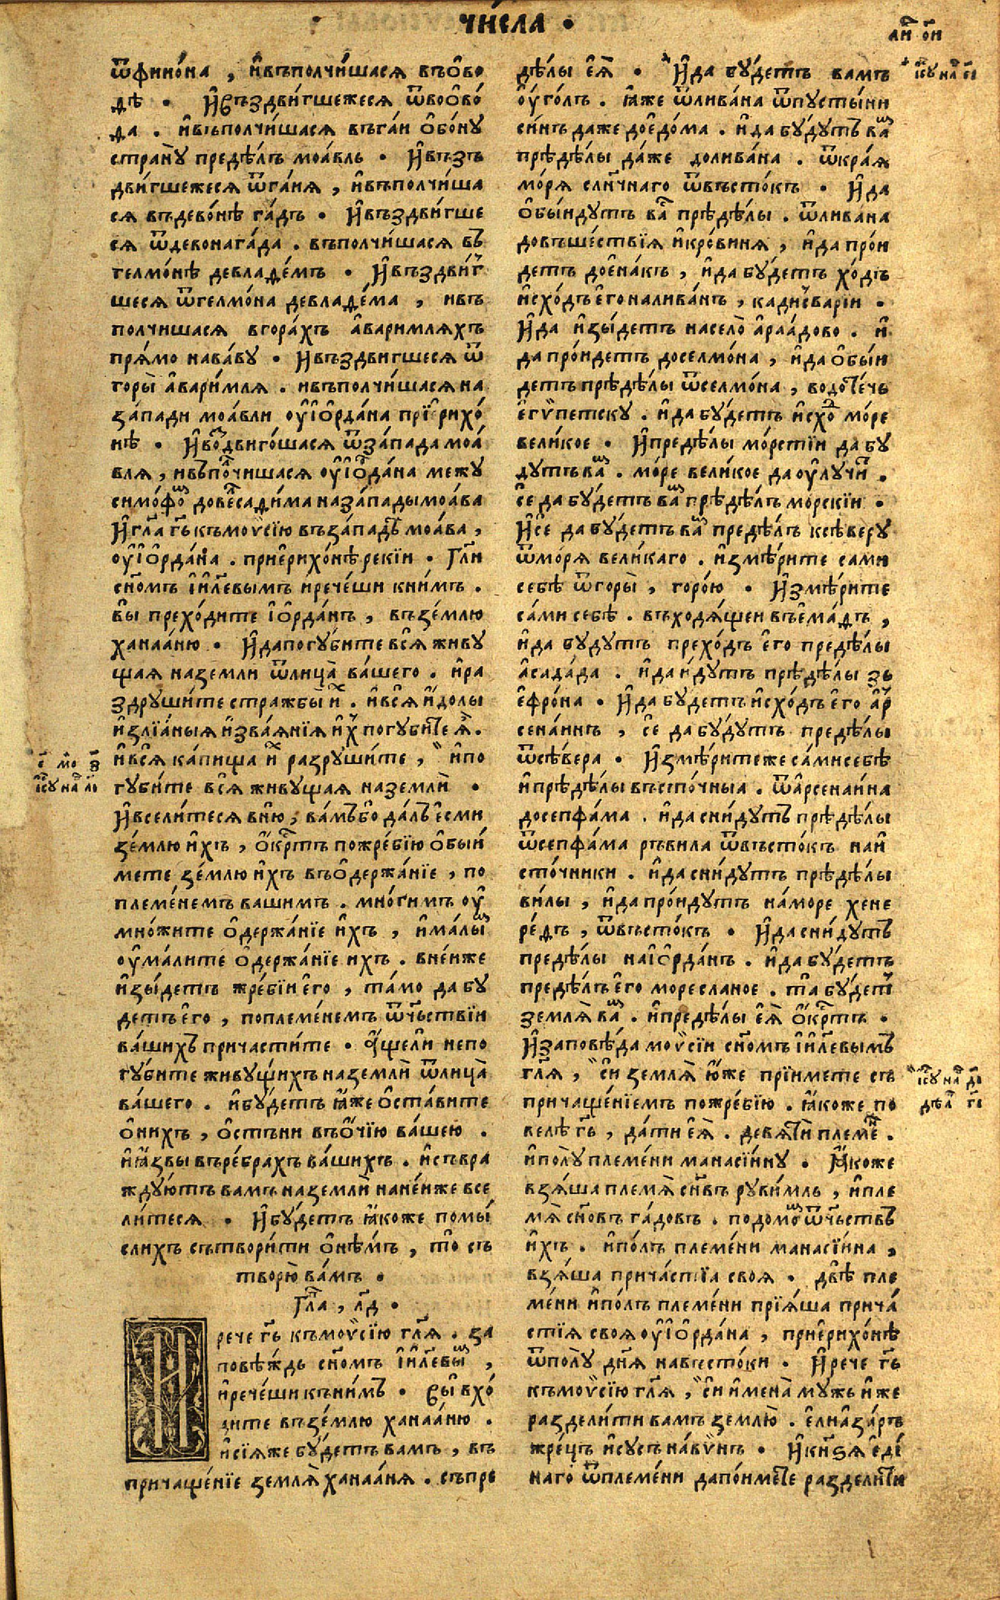 чи́сла ·
ѿфино́на , и҆въполчи́шася въѻ҆во
дѣ · И҆въздви́гшежеся ѿвоѻво́
да . и҆въполчи́шася въга́и ѻ҆бо́ну
страну̀ предѣ́лъ моа́вль · И҆въз̾
дви́гшежеся ѿга́ия , и҆въполчи́ша
ся въдево́нѣ га́дъ · И҆въздви́гше
ся ѿдевонага́да . въполчи́шася въ
гелмо́нѣ девладе́мъ · И҆въздви́г
шеся ѿгелмо́на девладе́ма , ивъ
полчишася вгора́хъ а҆варимляхъ
пря́мо нава́ву · И҆въздвигшеся ѿ
горы̀ а҆вари́мля . ивъполчи́шася на
за́пади моа́вли оу҆і҆ѻрда́на прїерихо́
нѣ · И҆воздвиго́шася ѿза́пада моа́
вля , ивъполчишася оу҆і҆ѻрда́на межу
симо́фѡ дове́лсади́ма наза́пады моа́ва
И҆гл҃а гд҃ь къмоѵ҆сі́ю въза́падъ моа́ва ,
оу҆і҆ѻрда́на . прие҆рихо́нѣ реки́и · Гл҃и
сн҃омъ і҆и҃левымъ иречеши книмъ .
вы̀ прехо́дите і҆ѻрда́нъ , възе́млю
ханаа́ню · И҆дапогуби́те вся̀ живу
щая наземли ѿлица̀ ва́шего . и҆ра
здруши́те стражбы̀ и҆х . ився̀ и҆до́лы
и҆злїа́ныя и҆зва́я́нїя и҆х погуби́те я҆ .
и҆вся̀ ка́пища и҆х разруши́те , и҆по
губи́те вся̀ живу́щая наземлѝ ·
И҆вселѝтеся вню̀ , ва́мъбо да́лъ е҆сми
зе́млю и҆́хъ , ѻ҆́крстъ пожре́бїю ѻ҆бы́и
мете зе́млю и҆хъ въѻ҆держа́нїе , по
племе́немъ вашимъ . мно́гимъ оу҆
мно́жите ѻ҆держа́нїе и҆хъ , и҆ма́лы
оу҆ма́лите ѻ҆держа́нїе ихъ . вне́нже
и҆зы́детъ жре́бїи е҆го̀ , та́мо да бу
детъ е҆го , поплеме́немъ ѿче́ствїи
ва́шихъ причасти́те · А҆́щели непо
губи́те живу́щихъ наземлѝ ѿлица̀
ва́шего . и҆бу́детъ и҆́же ѻ҆ста́вите
ѻ҆ни́хъ , ѻ҆́стъни въѻ҆чїю ва́шею .
ия҆́звы въре́брахъ ва́шихъ . и҆съвра
жду́ютъ вамъ наземлѝ нане́иже все
ли́теся · И҆бу́детъ я҆́коже помы́
слихъ сътвори́ти ѻ҆не́мъ , то̀ съ
творю̀ ва́мъ ·
Гл҃а , л҃д ·
И
рече гд҃ь къмоѵ҆сі́ю гл҃я . за
повѣ́ждь сн҃омъ і҆и҃левы ,
и҆рече́ши къни́мъ · вы̀ вхо́
дите възе́млю ханаа́ню .
и҆сїя́же бу́детъ вамъ , въ
причаще́нїе земля̀ ханаа́ня . съпре
дѣ́лы е҆я̀ · И҆да бу́детъ вамъ
оу҆́голъ . я҆́же ѿлива́на ѿпусты́ни
си́нъ да́же доедо́ма . и҆ да бу́дутъ ва
прѣдѣ́лы да́же долива́на . ѿкра́я
мо́ря сла́наго ѿвъсто́къ · И҆да
ѻ҆бы́идутъ ва прѣдѣ́лы . ѿлива́на
довъше́ствїя и҆кро́виня , и҆да про́и
детъ дое҆на́къ , и҆да бу́детъ хо́дъ
и҆схо́дъ е҆го налива́нъ , кади́свари́и .
И҆да и҆зы́детъ насело̀ а҆раа́дово . и҆
да про́идетъ доселмо́на , и҆да ѻ҆бы́и
детъ прѣдѣ́лы ѿселмо́на , водоте́чь
е҆гѵ́петску . и҆да бу́детъ и҆схо мо́ре
вели́кое · И҆предѣ́лы мо́рстїи да бу
дутъ ва . мо́ре вели́кое да оу҆лучи́т .
се́ да бу́детъ ва прѣдѣ́лъ мо́рскїи ·
И҆сѐ да бу́детъ ва предѣ́лъ ксѣ́веру
ѿмо́ря вели́каго . и҆змѣ́рите сами
себѣ̀ ѿгоры̀ , горо́ю · И҆змѣ́рите
са́ми себѣ̀ . въходя́щеи въе҆ма́дъ ,
и҆да бу́дутъ прехо́дъ е҆го̀ предѣ́лы
а҆сада́да . и҆да и҆́дутъ прѣдѣ́лы зь
е҆фро́на · И҆да бу́детъ и҆схо́дъ е҆го̀ а҆р
сена́инъ , сѐ да бу́дутъ предѣ́лы
ѿсѣ́вера · И҆змѣ́ритеже са́мисебѣ̀
и҆прѣдѣ́лы въсто́чныа . ѿа҆рсена́ина
досепфа́ма . и҆да сни́дутъ прѣдѣ́лы
ѿсепфа́ма рѣ́вила ѿвъсто́къ наи҆
сто́чники . и҆да сни́дутъ прѣдѣ́лы
ви́лы , и҆да про́идутъ на́море хене
ре́дъ , ѿвъсто́къ · И҆да сни́дутъ
предѣ́лы наі҆ѻрда́нъ . и҆да бу́детъ
предѣ́лъ е҆го̀ море сланое . та̀ бу́дет
земля̀ ва . и҆предѣ́лы е҆я̀ ѻ҆́крстъ ·
И҆заповѣ́да моѵ҆сі́и сн҃омъ і҆и҃левымъ
гл҃я , сѝ земля̀ ю҆́же прїи́мете съ
причаще́нїемъ пожре́бїю . я҆́коже по
велѣ̀ гд҃ь , да́ти е҆я̀ . девяти́ племе́н .
и҆полу племе́ни манасі́ину · Я҆́коже
взя́ша племя̀ сн҃въ руви́мль , и҆пле
мя̀ сн҃овъ га́довъ . подомо́ ѿче́ствъ
и҆хъ . и҆по́лъ племе́ни манасі́ина ,
взя́ша прича́стїа своя · двѣ̀ пле
ме́ни и҆по́лъ племе́ни прїя́ша прича́
стїя своя оу҆і҆ѻрда́на , прие҆рихо́нѣ
ѿполу̀ дня̀ навъсто́ки · И҆рече гд҃ь
къмоѵ҆сі́ю гл҃я , сѝ и҆мена̀ му́жь и҆же
раздели́ти вамъ землю̀ . е҆лиа҆за́ръ
жре́цъ и҆сусъ на́вѵнъ · И҆кн҃зя е҆ди́
наго ѿплемени дапои́мете раздели́ти